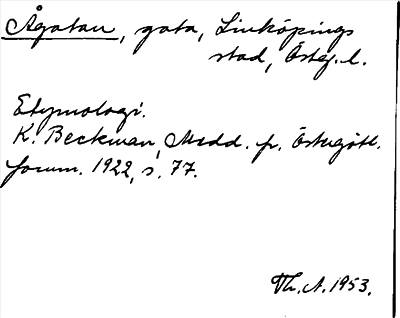 Ågatan, gata, Linköpings
stad, Österg. l.
Etymologi.
K. Beckman, Medd. fr. Östergötl.
fornm. 1922, s. 77.
Th. A. 1953.